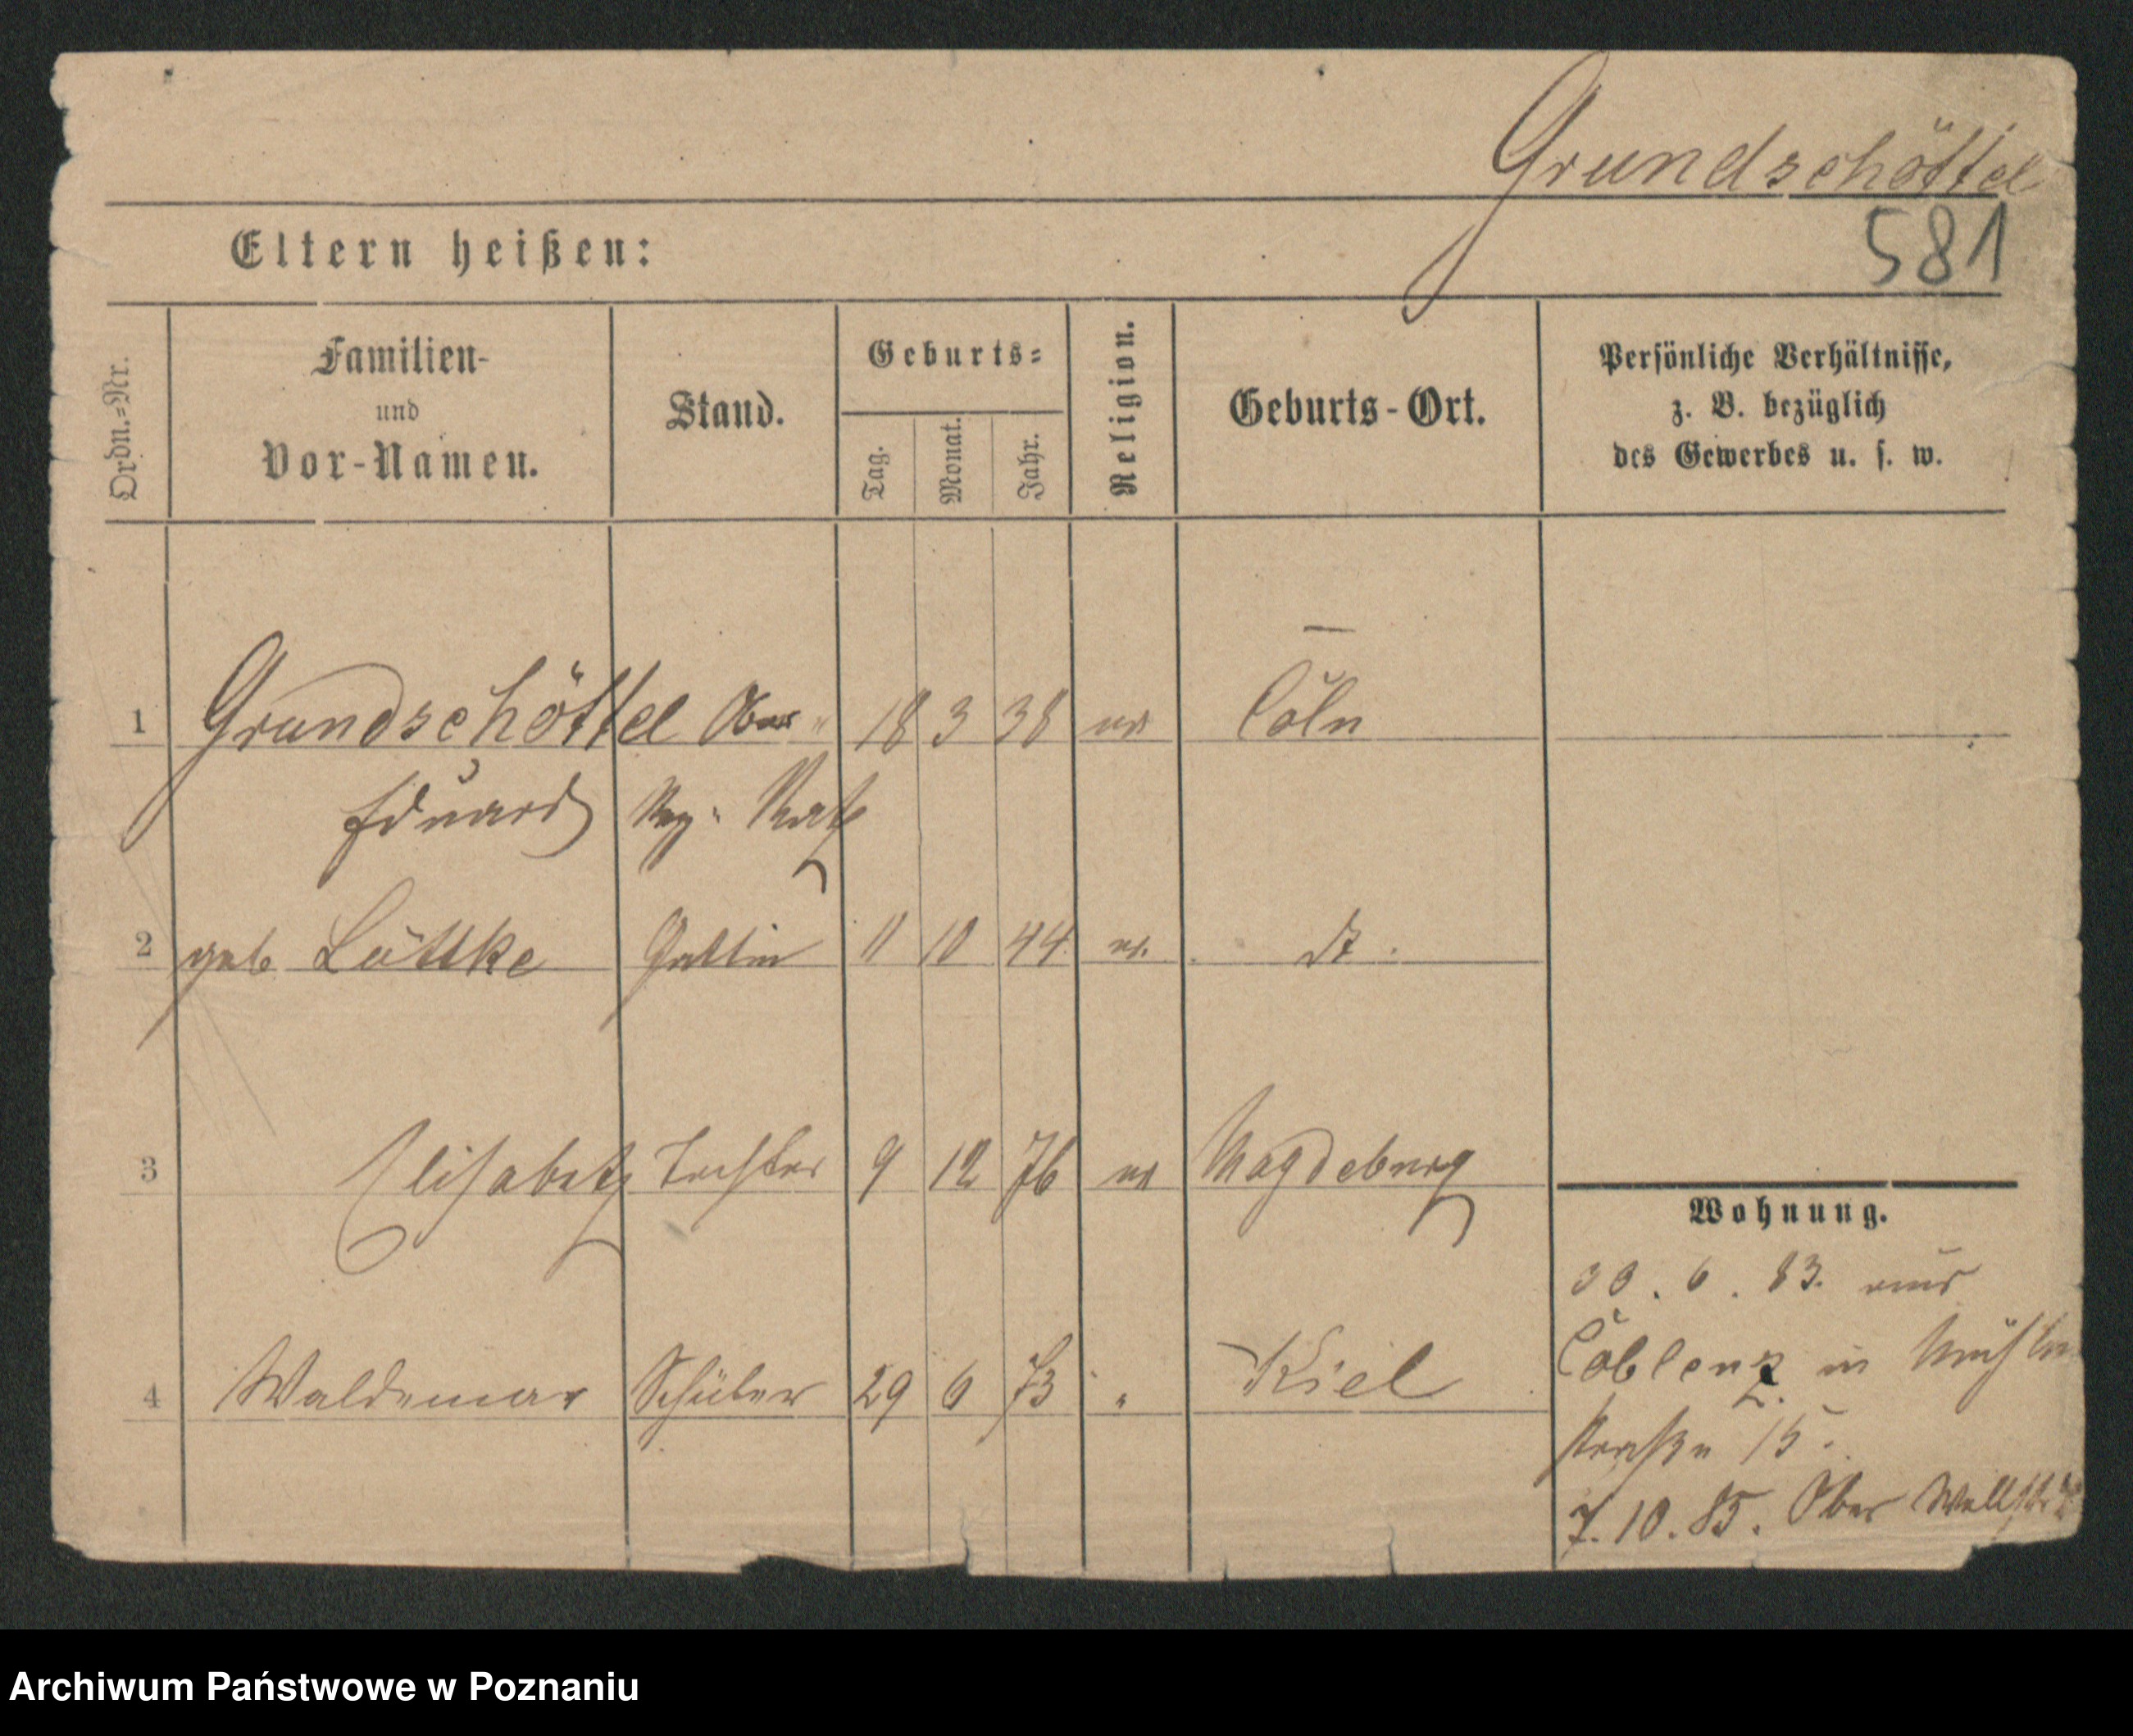 Grundschöttel
581
Eltern heißen:
Ordn.=Nr.
Familien-
und
Vor-Namen.
Stand.
Geburts=
Tag.
Monat.
Jahr.
Religion.
Geburts-Ort.
Persönliche Verhältnisse,
z. B. bezüglich
des Gewerbes u. s. w.
1 Grundschöttel Ober- 18 3 38 ev Cöln
Eduard Reg. Rath
2 geb Lüttke Gattin 11 10 44 ev. dt.
3 Elisabeth Tochter 9 12 76 ev Magdeburg
4 Waldemar Schüler 29 6 73 " Kiel
Wohnung.
30. 6. 83. aus
Coblenz in Mühlen
straße 15.
7. 10. 85. Ober Wallstr
Archiwum Państwowe w Poznaniu